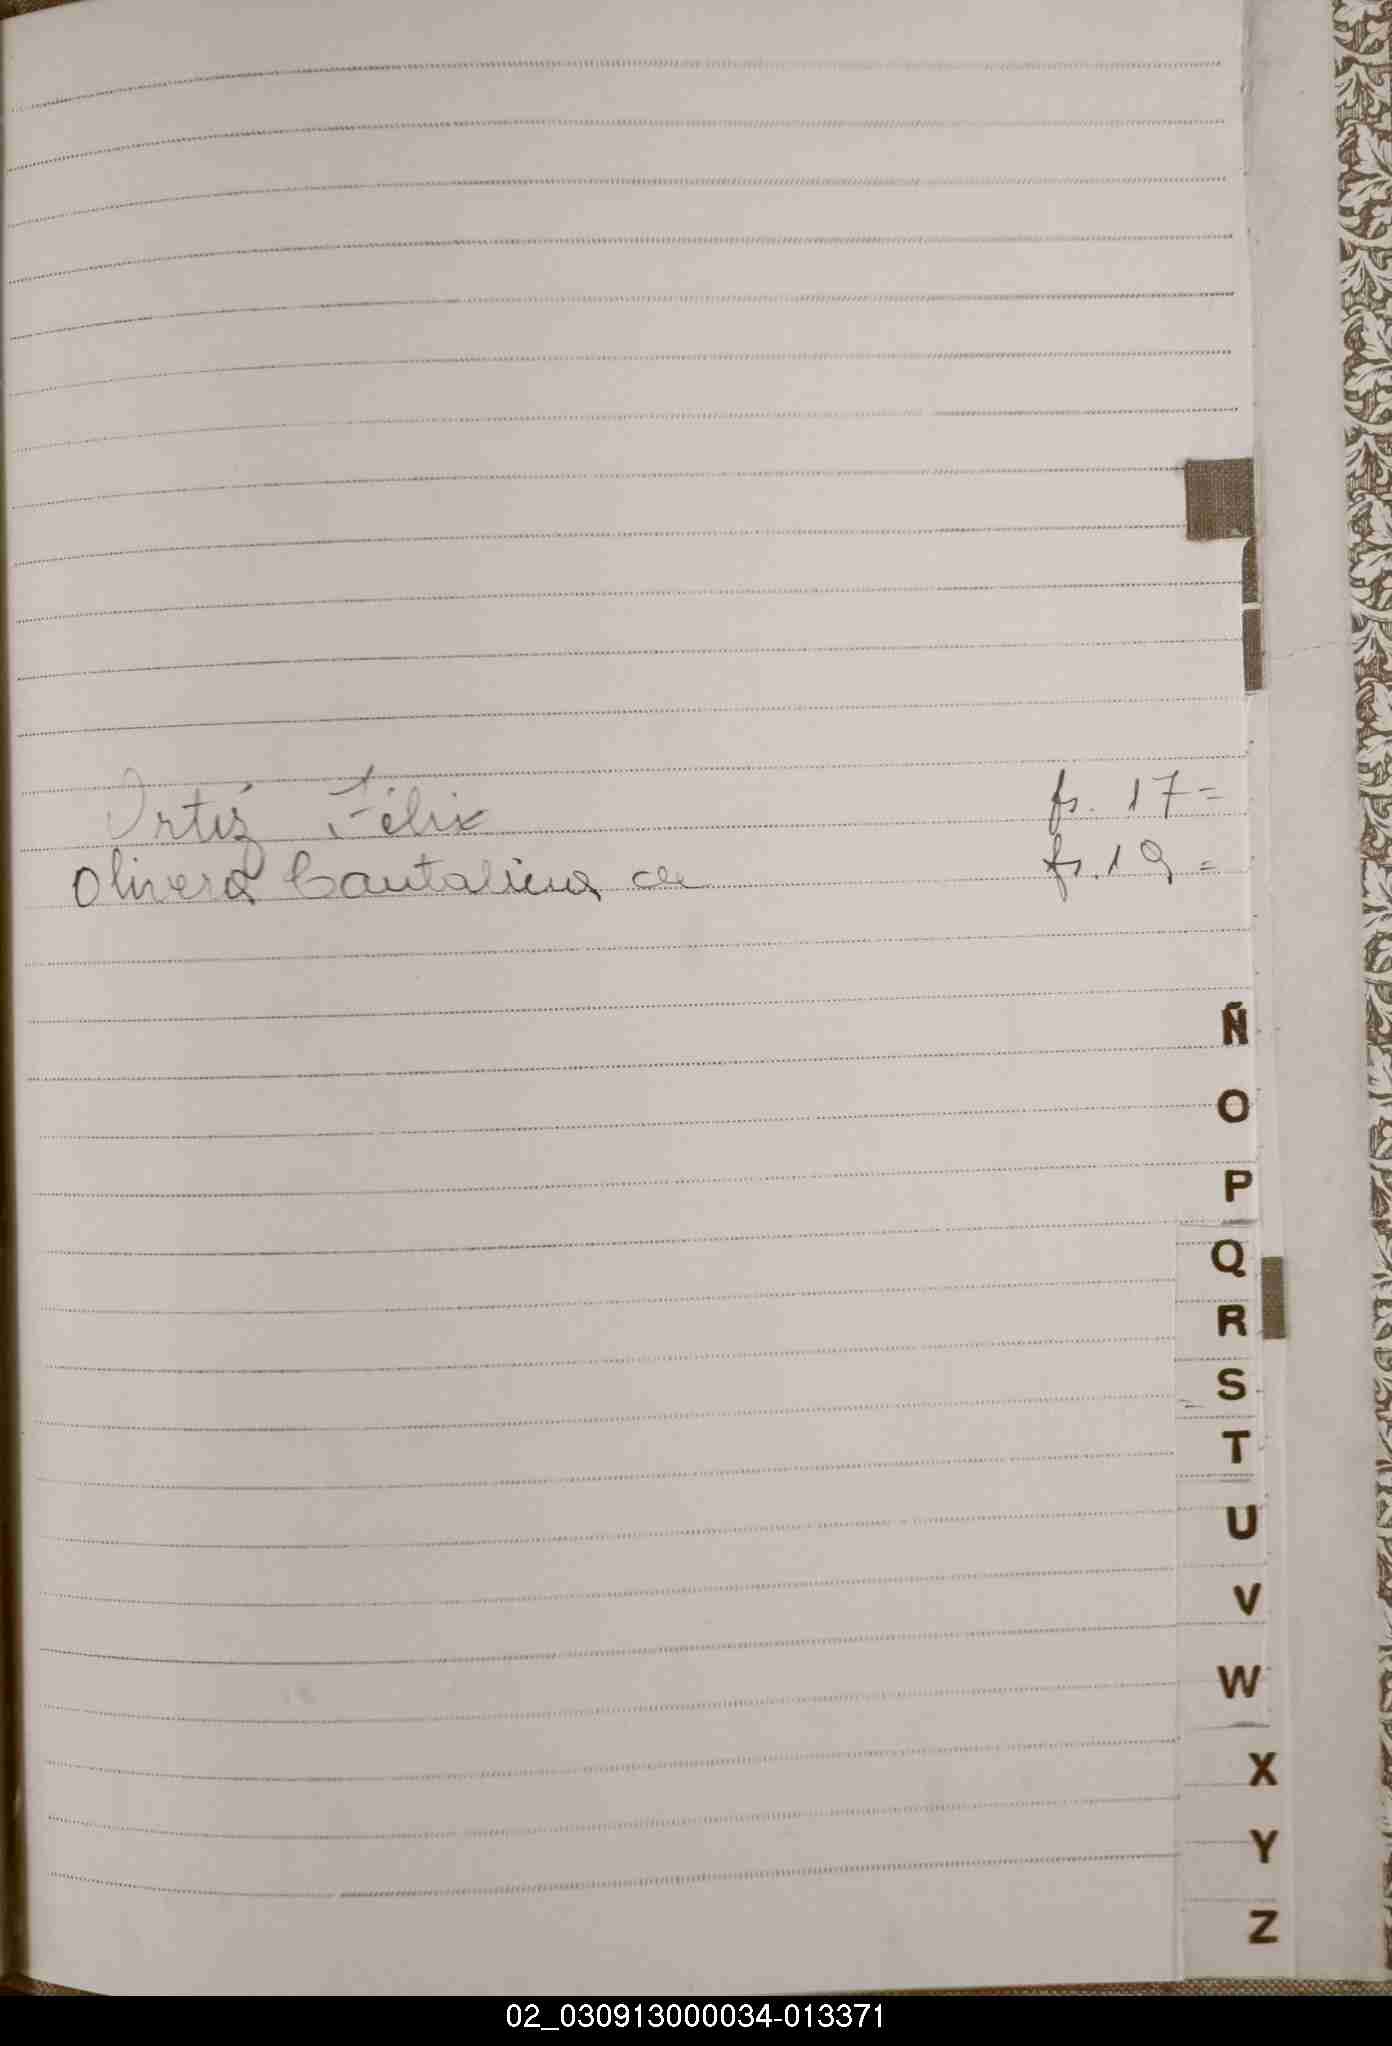 Ortíz Félix fs. 17=
Olivera Cantalicia de fs. 19=
Ñ
O
P
Q
R
S
T
U
V
W
X
Y
Z
02_030913000034-013371